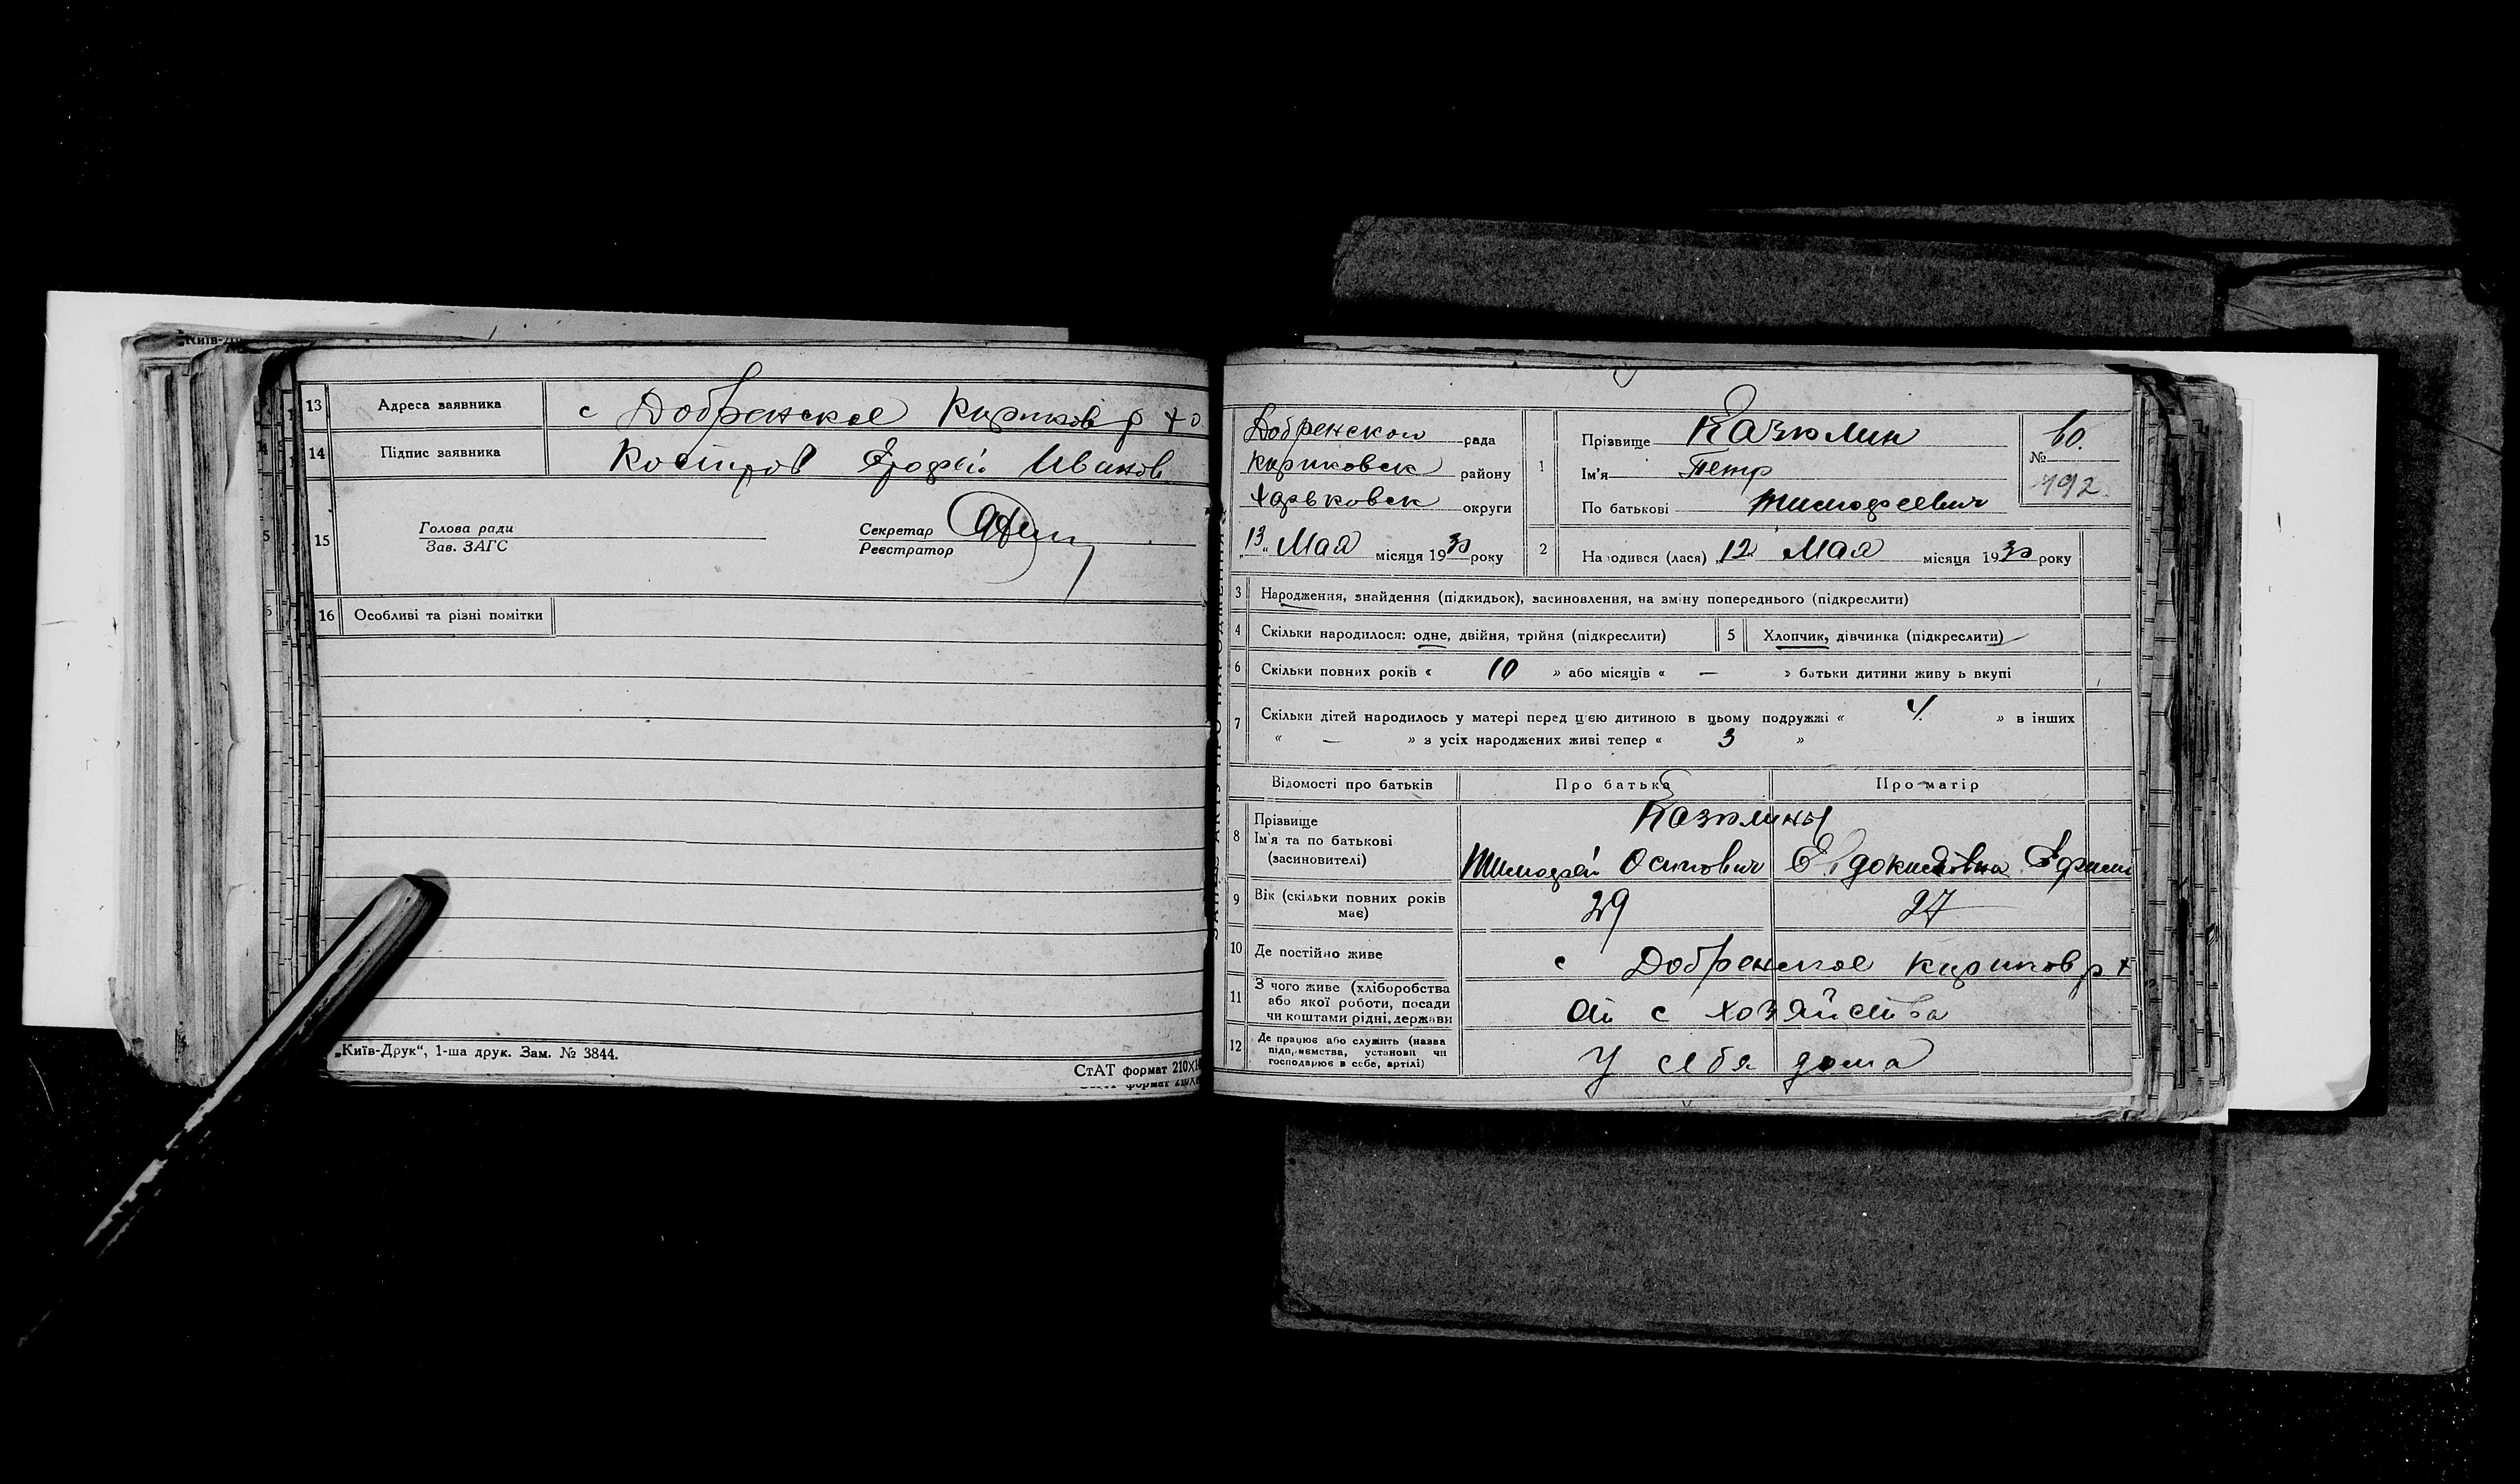 „Київ-Др
13 Адреса заявника с Добренское Кириков р Хо
14 Підпис заявника Костиров Ерофей Иванов
15 Голова ради
Зав. ЗАГС
Секретар
Реєстратор
16 Особливі та різні помітки
„Київ-Друк“, 1-ша друк. Зам. № 3844.
СтАТ формат 210Х14
Добренской рада
Кириковск району
Харьковск округи
„13„ Мая місяця 1930 року
1 Прізвище Казюлин
Ім'я Петр
По батькові Тимофеевич
№ 60.
192.
2 Народився (лася) „12 Мая місяця 1930 року
3 Народження, знайдення (підкидьок), засиновлення, на зміну попереднього (підкреслити)
4 Скільки народилося: одне, двійня, трійня (підкреслити) 5 Хлопчик, дівчинка (підкреслити)
6 Скільки повних років « 10 » або місяців « — » батьки дитини живу ь вкупі
7 Скільки дітей народилось у матері перед цією дитиною в цьому подружжі « 4. » в інших
« — » з усіх народжених живі тепер « 3 »
Відомості про батьків Про батька Про матір
8 Прізвище Казюлины
Ім'я та по батькові
(засиновителі) Тимофей Осипович Ефими
9 Вік (скільки повних років має) 29 27
10 Де постійно живе с Добренское Кириков р Х
11 З чого живе (хліборобства
або якої роботи, посади
чи коштами рідні, держави От с хозяйства
12 Де працює або служить (назва
підприємства, установи чи
господарює в себе, артілі) У себя дома